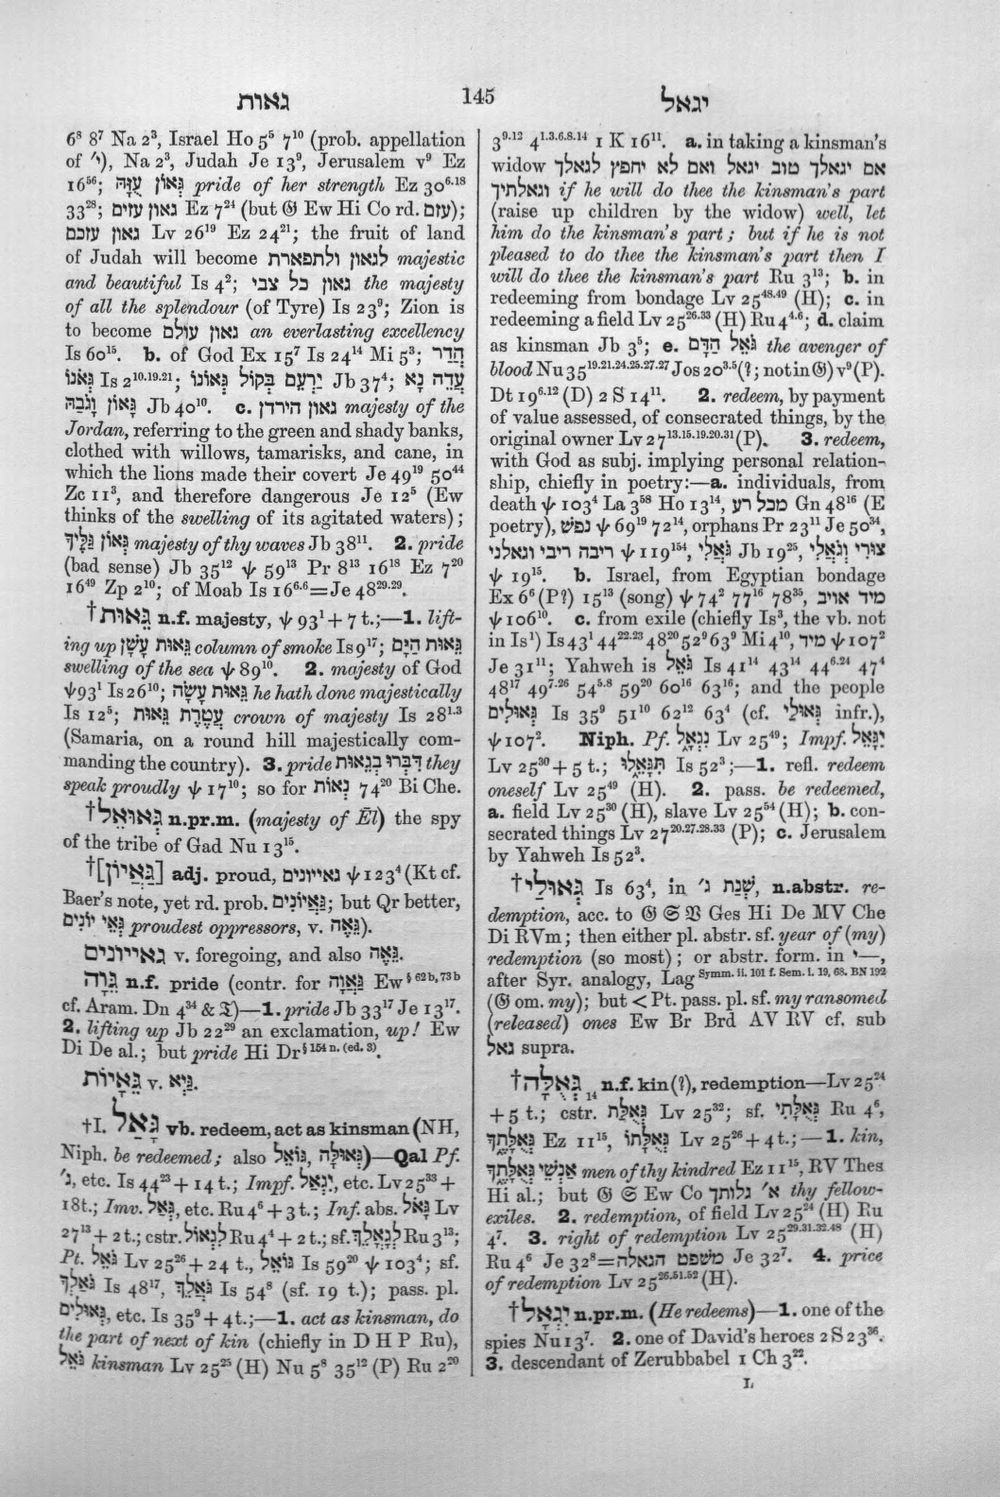 גאות
145
יגאל
6⁸ 8⁷ Na 2³, Israel Ho 5⁵ 7¹⁰ (prob. appellation
of י״), Na 2³, Judah Je 13⁹, Jerusalem v⁹ Ez
16⁵⁶; גְּאוֹן עֻזָּהּ pride of her strength Ez 30⁶·¹⁸
33²⁸; גאון עזים Ez 7²⁴ (but 𝔊 Ew Hi Co rd. עזם);
גאון עזכם Lv 26¹⁹ Ez 24²¹; the fruit of land
of Judah will become לגאון ולתפארת majestic
and beautiful Is 4²; גאון כל צבי the majesty
of all the splendour (of Tyre) Is 23⁹; Zion is
to become גאון עולם an everlasting excellency
Is 60¹⁵. b. of God Ex 15⁷ Is 24¹⁴ Mi 5³; הֲדַר
גְּאֹנוֹ Is 2¹⁰·¹⁹·²¹; יַרְעֵם בְּקוֹל גְּאוֹנוֹ Jb 37⁴; עֲדֵה נָא
גָאוֹן וָגֹבַהּ Jb 40¹⁰. c. גאון הירדן majesty of the
Jordan, referring to the green and shady banks,
clothed with willows, tamarisks, and cane, in
which the lions made their covert Je 49¹⁹ 50⁴⁴
Zc 11³, and therefore dangerous Je 12⁵ (Ew
thinks of the swelling of its agitated waters);
גְּאוֹן גַּלֶּיךָ majesty of thy waves Jb 38¹¹. 2. pride
(bad sense) Jb 35¹² ψ 59¹³ Pr 8¹³ 16¹⁸ Ez 7²⁰
16⁴⁹ Zp 2¹⁰; of Moab Is 16⁶·⁶=Je 48²⁹·²⁹.
†גֵּאוּת n.f. majesty, ψ 93¹ + 7 t.;—1. lift-
ing up גֵּאוּת עָשָׁן column of smoke Is 9¹⁷; גֵּאוּת הַיָּם
swelling of the sea ψ 89¹⁰. 2. majesty of God
ψ93¹ Is 26¹⁰; גֵּאוּת עָשָׂה he hath done majestically
Is 12⁵; עֲטֶרֶת גֵּאוּת crown of majesty Is 28¹·³
(Samaria, on a round hill majestically com-
manding the country). 3. pride דִּבְּרוּ בְגֵאוּת they
speak proudly ψ 17¹⁰; so for נְאוֹת 74²⁰ Bi Che.
†גְּאוּאֵל n.pr.m. (majesty of Ēl) the spy
of the tribe of Gad Nu 13¹⁵.
†[גַּאֲיוֹן] adj. proud, גאיונים ψ 123⁴ (Kt cf.
Baer's note, yet rd. prob. גַּאֲיוֹנִים; but Qr better,
גְּאֵי יוֹנִים proudest oppressors, v. גֵּאֶה).
גאייונים v. foregoing, and also גֵּאֶה.
גֵּוָה n.f. pride (contr. for גַּאֲוָה Ew§ 62b, 73b
cf. Aram. Dn 4³⁴ & 𝔗)—1. pride Jb 33¹⁷ Je 13¹⁷.
2. lifting up Jb 22²⁹ an exclamation, up! Ew
Di De al.; but pride Hi Dr§ 154 n. (ed. 3).
גֵּאָיוֹת v. גַּיְא.
†I. גָּאַל vb. redeem, act as kinsman (NH,
Niph. be redeemed; also גְּאוּלָּה, גּוֹאֵל)—Qal Pf.
ג׳, etc. Is 44²³ + 14 t.; Impf. יִגְאַל, etc. Lv 25³³ +
18t.; Imv. גְּאַל, etc. Ru 4⁶ + 3 t.; Inf. abs. גָּאֹל Lv
27¹³ + 2 t.; cstr. לִגְאוֹל Ru 4⁴ + 2 t.; sf. לְגָאֳלֵךְ Ru 3¹³;
Pt. גֹּאֵל Lv 25²⁶ + 24 t., גּוֹאֵל Is 59²⁰ ψ 103⁴; sf.
גֹּאַלְךָ Is 48¹⁷, גֹּאֲלֵךְ Is 54⁸ (sf. 19 t.); pass. pl.
גְּאוּלִים, etc. Is 35⁹ + 4t.;—1. act as kinsman, do
the part of next of kin (chiefly in D H P Ru),
גֹּאֵל kinsman Lv 25²⁵ (H) Nu 5⁸ 35¹² (P) Ru 2²⁰
3⁹·¹² 4¹·³·⁶·⁸·¹⁴ 1 K 16¹¹. a. in taking a kinsman's
widow אם יגאלך טוב יגאל ואם לא יחפץ לגאלך
וגאלתיך if he will do thee the kinsman's part
(raise up children by the widow) well, let
him do the kinsman's part; but if he is not
pleased to do thee the kinsman's part then I
will do thee the kinsman's part Ru 3¹³; b. in
redeeming from bondage Lv 25⁴⁸·⁴⁹ (H); c. in
redeeming a field Lv 25²⁶·³³ (H) Ru 4⁴·⁶; d. claim
as kinsman Jb 3⁵; e. גֹּאֵל הַדָּם the avenger of
blood Nu 35¹⁹·²¹·²⁴·²⁵·²⁷·²⁷ Jos 20³·⁵(?; not in 𝔊) v⁹ (P).
Dt 19⁶·¹² (D) 2 S 14¹¹. 2. redeem, by payment
of value assessed, of consecrated things, by the
original owner Lv 27¹³·¹⁵·¹⁹·²⁰·³¹ (P). 3. redeem,
with God as subj. implying personal relation-
ship, chiefly in poetry:—a. individuals, from
death ψ 103⁴ La 3⁵⁸ Ho 13¹⁴, מכל רע Gn 48¹⁶ (E
poetry), נפשׁ ψ 69¹⁹ 72¹⁴, orphans Pr 23¹¹ Je 50³⁴,
ריבה ריבי וגאלני ψ 119¹⁵⁴, גֹּאֲלִי Jb 19²⁵, צוּרִי וְגֹאֲלִי
ψ 19¹⁵. b. Israel, from Egyptian bondage
Ex 6⁶ (P?) 15¹³ (song) ψ 74² 77¹⁶ 78³⁵, מיד אויב
ψ 106¹⁰. c. from exile (chiefly Is³, the vb. not
in Is¹) Is 43¹ 44²²·²³ 48²⁰ 52⁹ 63⁹ Mi 4¹⁰, מיד ψ 107²
Je 31¹¹; Yahweh is גֹּאֵל Is 41¹⁴ 43¹⁴ 44⁶·²⁴ 47⁴
48¹⁷ 49⁷·²⁶ 54⁵·⁸ 59²⁰ 60¹⁶ 63¹⁶; and the people
גְּאוּלִים Is 35⁹ 51¹⁰ 62¹² 63⁴ (cf. גְּאוּלַי infr.),
ψ 107². Niph. Pf. נִגְאַל Lv 25⁴⁹; Impf. יִגָּאֵל
Lv 25³⁰ + 5 t.; תִּגָּאֵלוּ Is 52³;—1. refl. redeem
oneself Lv 25⁴⁹ (H). 2. pass. be redeemed,
a. field Lv 25³⁰ (H), slave Lv 25⁵⁴ (H); b. con-
secrated things Lv 27²⁰·²⁷·²⁸·³³ (P); c. Jerusalem
by Yahweh Is 52³.
†גְּאוּלַי Is 63⁴, in שְׁנַת ג׳, n.abstr. re-
demption, acc. to 𝔊 𝔖 𝔙 Ges Hi De MV Che
Di RVm; then either pl. abstr. sf. year of (my)
redemption (so most); or abstr. form. in ־ַי,
after Syr. analogy, Lag Symm. ii. 101 f. Sem. i. 19, 68. BN 192
(𝔊 om. my); but < Pt. pass. pl. sf. my ransomed
(released) ones Ew Br Brd AV RV cf. sub
גאל supra.
†גְּאֻלָּה₁₄ n.f. kin(?), redemption—Lv 25²⁴
+ 5 t.; cstr. גְּאֻלַּת Lv 25³²; sf. גְּאֻלָּתִי Ru 4⁶,
גְּאֻלָּתֶךָ Ez 11¹⁵, גְּאֻלָּתוֹ Lv 25²⁶ + 4 t.;—1. kin,
אַנְשֵׁי גְאֻלָּתֶךָ men of thy kindred Ez 11¹⁵, RV Thes
Hi al.; but 𝔊 𝔖 Ew Co א׳ גלותך thy fellow-
exiles. 2. redemption, of field Lv 25²⁴ (H) Ru
4⁷. 3. right of redemption Lv 25²⁹·³¹·³²·⁴⁸ (H)
Ru 4⁶ Je 32⁸=משפט הגאלה Je 32⁷. 4. price
of redemption Lv 25²⁶·⁵¹·⁵² (H).
†יִגְאָל n.pr.m. (He redeems)—1. one of the
spies Nu 13⁷. 2. one of David's heroes 2 S 23³⁶.
3. descendant of Zerubbabel 1 Ch 3²².
L